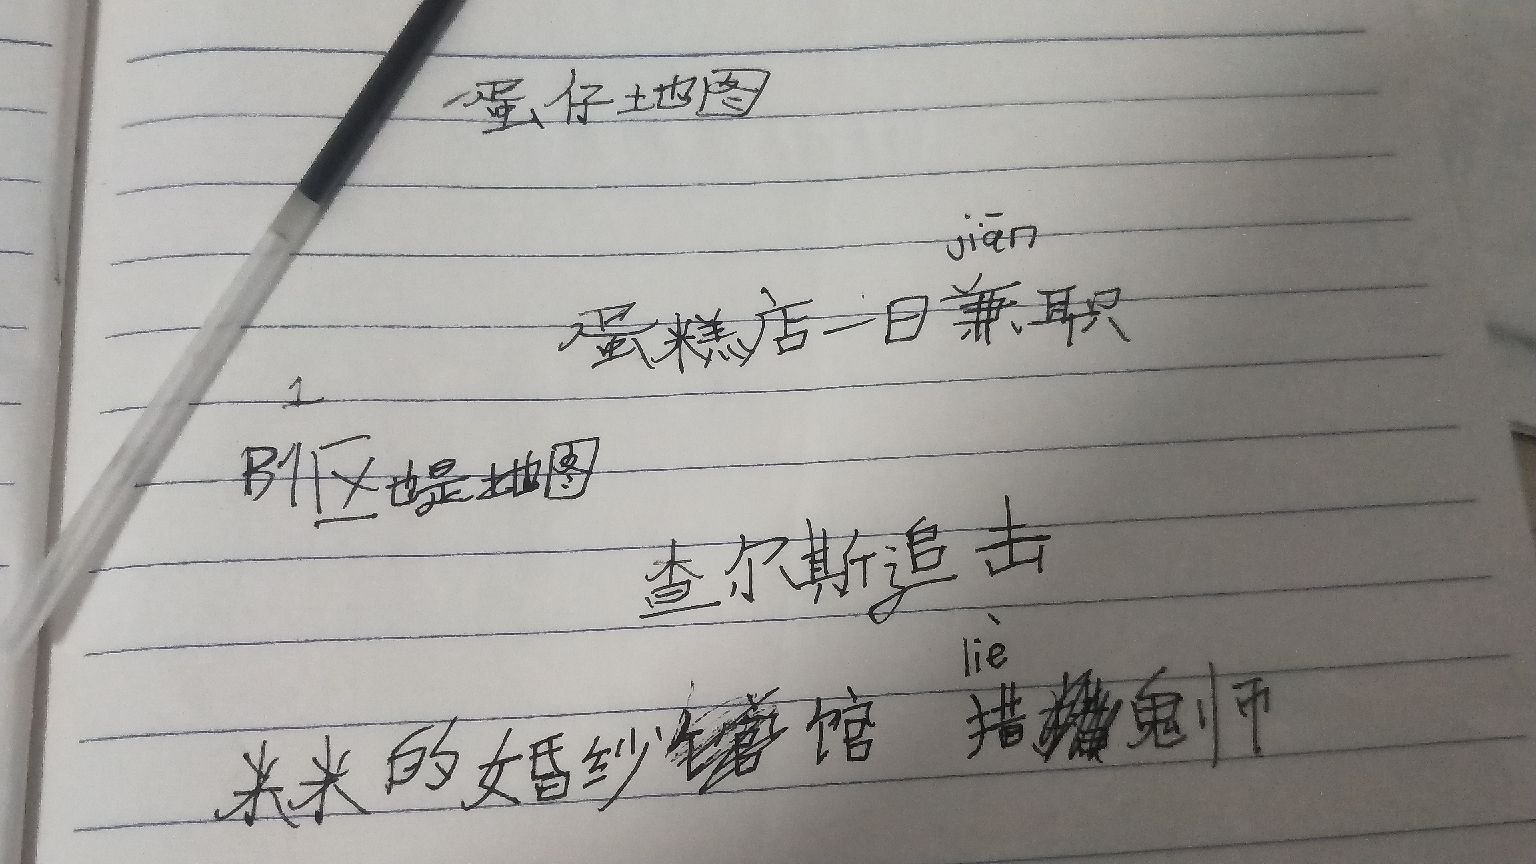 蛋仔地图
jiān
蛋糕店一日兼职
1
B1区也是地图
查尔斯追击
liè
米米的婚纱馆 措鬼师